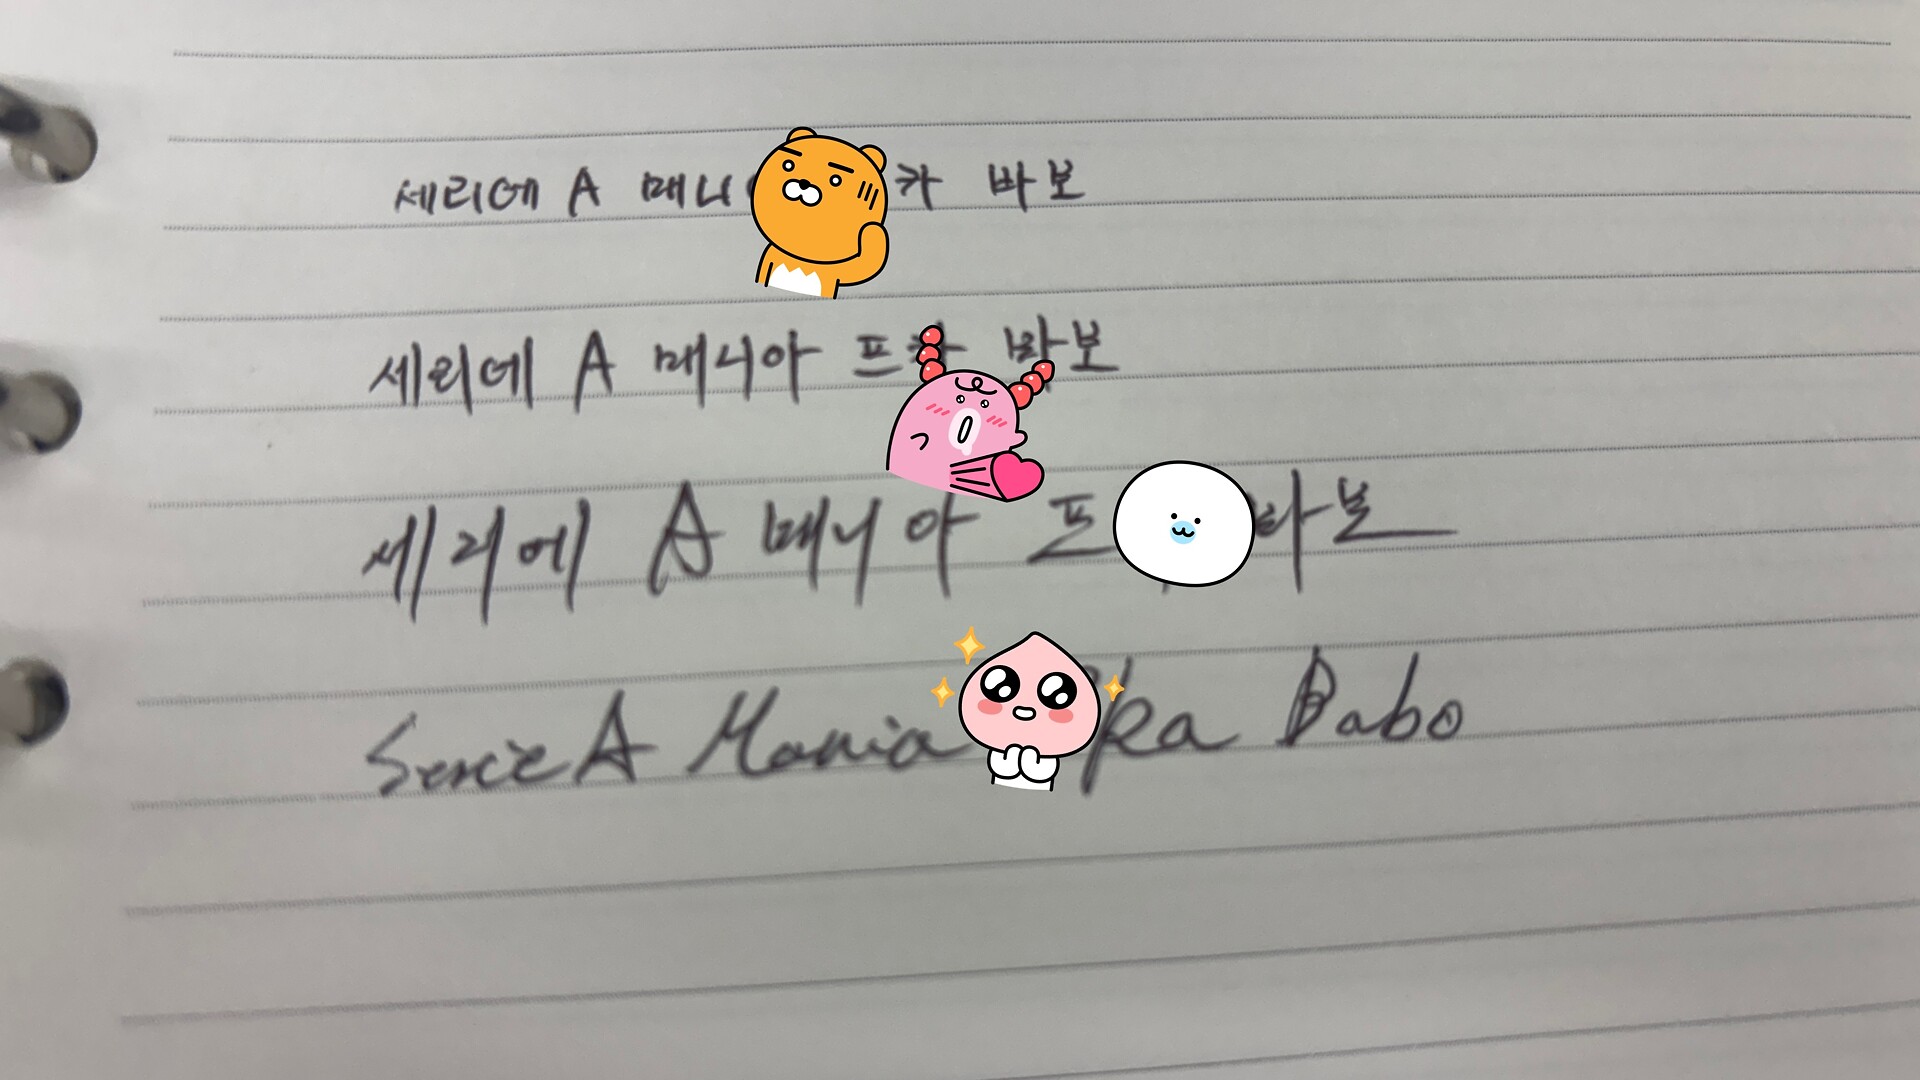 세리에 A 매니 카 바보
세리에 A 매니아 프카 바보
세리에 A 매니아 프 바보
Serie A Mania ka Babo